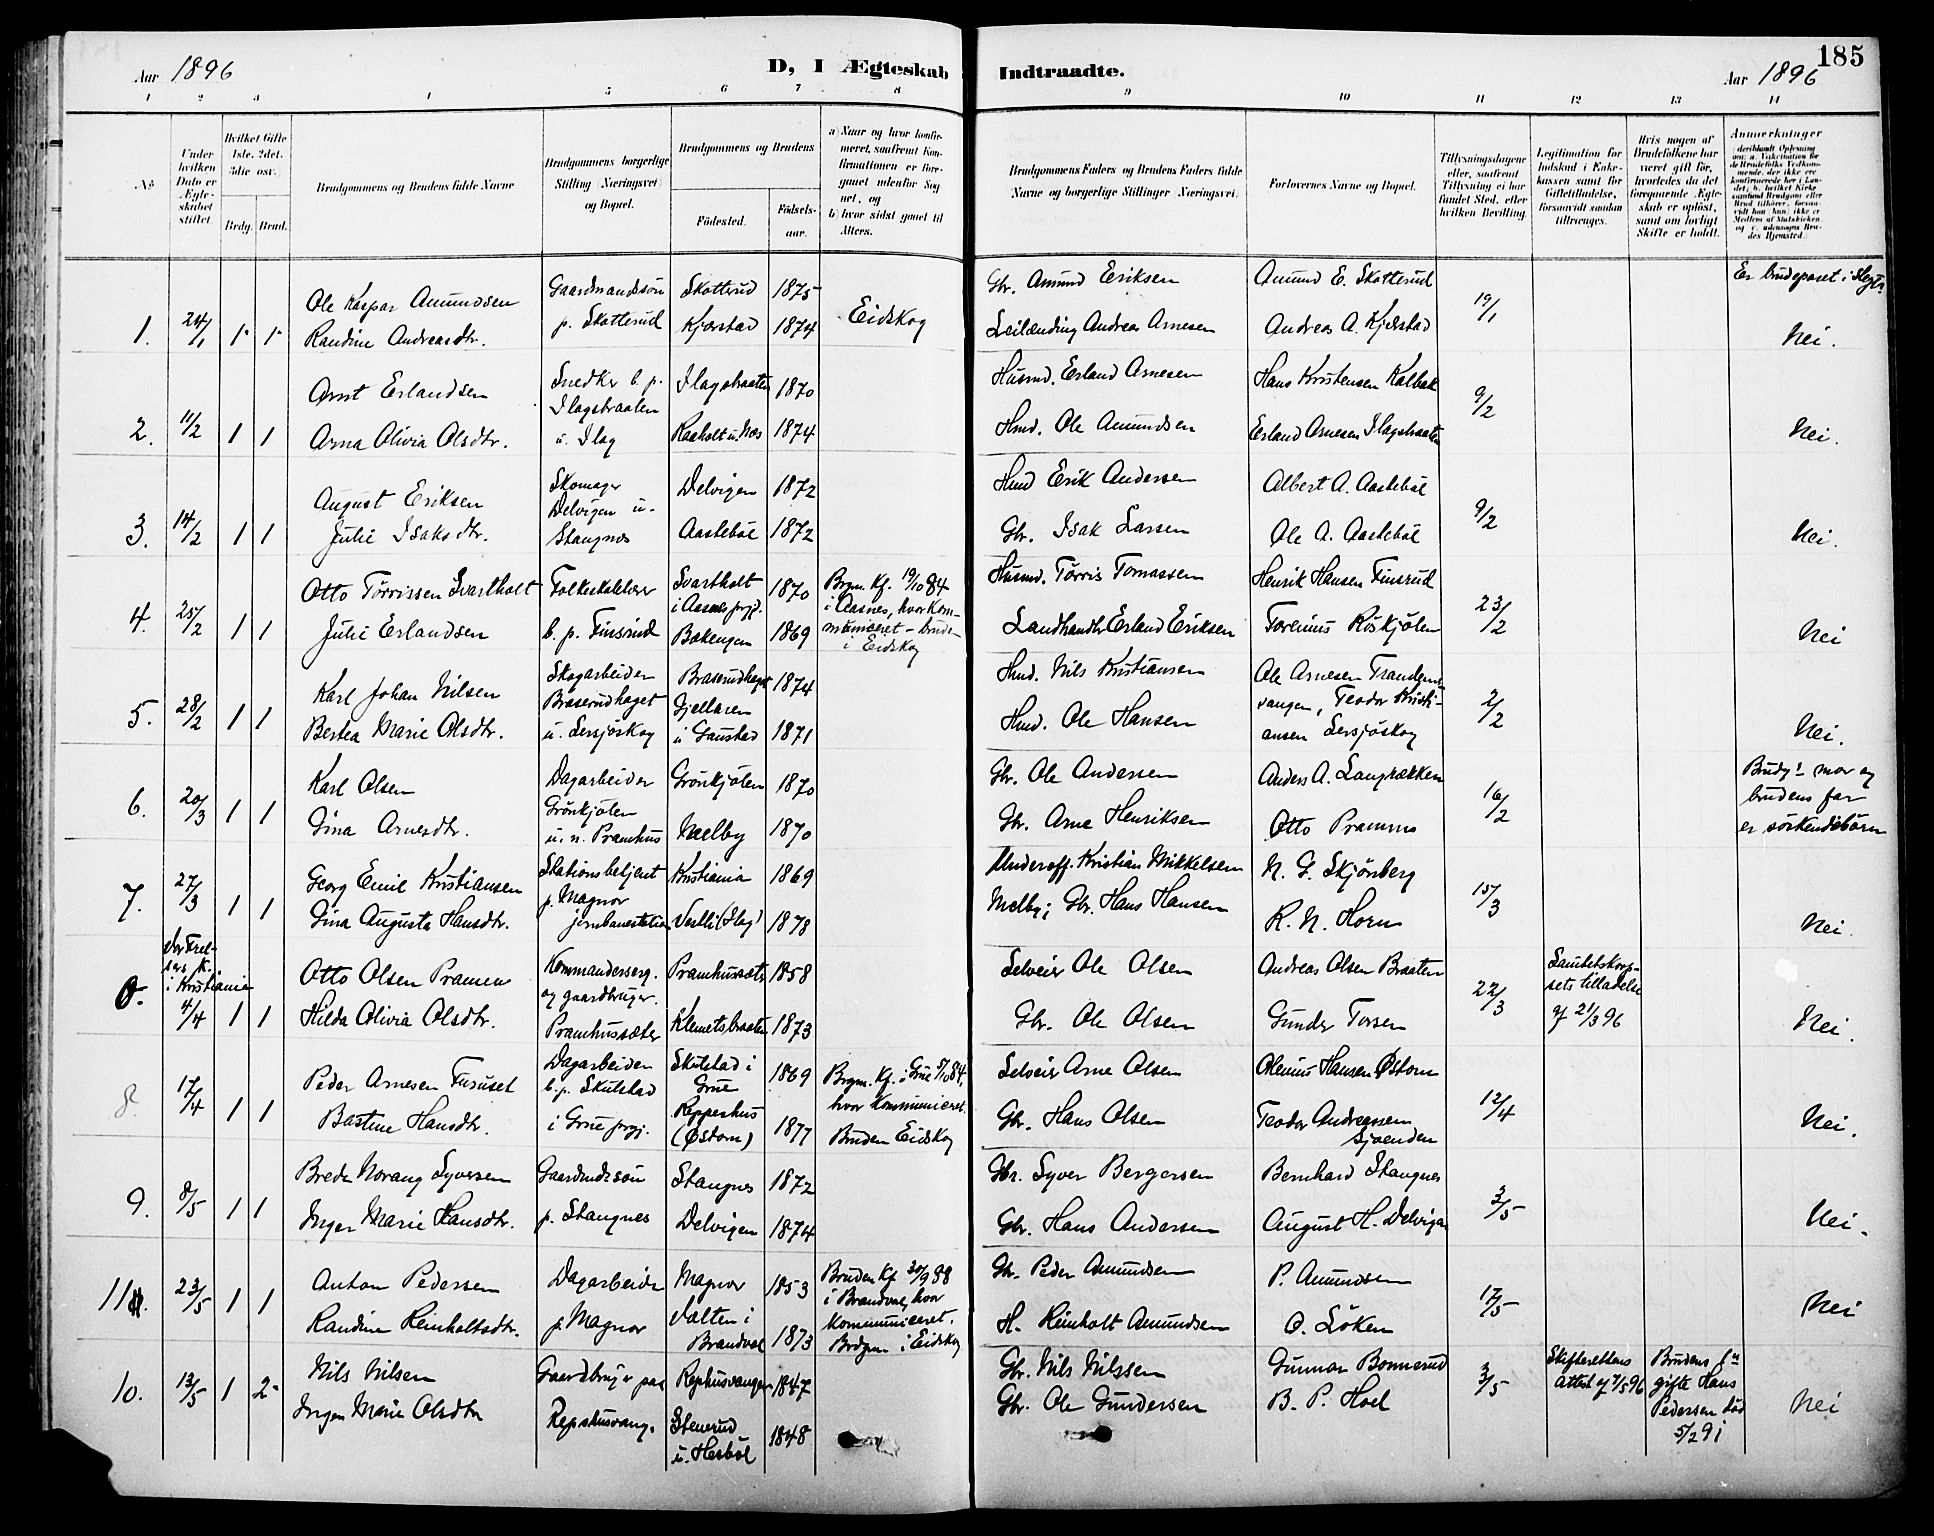 Aar 1896
D, I Ægteskab Indtraadte.
Aar 1896
185
1 2 3 4 5 6 7 8 9 10 11 12 13 14
No
Under hvilken Dato er Ægteskabet stiftet.
Hvilket Gifte (1ste, 2det, 3die osv.)
Brdg. Brud.
Brudgommens og Brudens fulde Navne
Brudgommens borgerlige Stilling (Næringsvei) og Bopæl.
Brudgommens og Brudens
Fødested.
Fødselsaar.
a) Naar og hvor konfirmeret, saafremt Konfirmationen er foregaaet udenfor Sognet, og
b) hvor sidst gaaet til Alters.
Brudgommens Faders og Brudens Faders fulde Navne og borgerlige Stillinger (Næringsvei).
Forlovernes Navne og Bopæl.
Tillysningsdagene eller, saafremt Tillysning ei har fundet Sted, efter hvilken Bevilling.
Legitimation for Indskud i Enkekassen samt for Giftetilladelse, forsaavidt saadan tiltrænges.
Hvis nogen af Brudefolkene har været gift før, hvorledes da det foregaaende Ægteskab er opløst, samt om lovligt Skifte er holdt.
Anmerkninger
1. 24/1 1 1
Ole Kaspar Amundsen
Randine Andreasdtr.
Gaardmandssøn
p. Skotterud
Skotterud 1875
Kjærstad 1874
Eidskog
Gbr. Amund Eriksen
Leilænding Andreas Arnesen
Amund E. Skotterud
Andreas A. Kjærstad
19/1
Er brudeparet i slegt?
Nei.
2. 11/2 1 1
Arnt Erlandsen
Arna Olivia Olsdtr.
Snedker b. p.
Slagstraaten
u. Slag
Slagstraaten 1870
Raaholt u. Næs 1874
Husmd. Erland Arnesen
Hmd. Ole Amundsen
Hans Kristensen Kalbak
Erland Arnesen Slagstraaten
9/2
Nei.
3. 14/2 1 1
August Eriksen
Julie Isaksdtr.
Skomager
Delvigen u.
Stangnes
Delvigen 1872
Aastebøl 1872
Hmd Erik Andersen
Gbr. Isak Larsen
Albert A. Aastebøl
Ole A. Aastebøl
9/2
Nei.
4. 25/2 1 1
Otto Tørrissen Svartholt
Julie Erlandsen
Folkeskolelærer
b. p. Finsrud
Svartholt
i Aasnes prgj. 1870
Bakengen 1869
Brgm. Kf. 19/10 84
i Aasnes, hvor kommuniceret – bruden
i Eidskog
Husmd. Tørris Tomassen
Landhandler Erland Eriksen
Henrik Hansen Finsrud
Torenius Røskjølen
23/2
Nei
5. 28/2 1 1
Karl Johan Nilsen
Bertea Marie Olsdtr.
Skogarbeider
Braserudhaget
u. Lersjøskog
Braserudhaget 1874
Gjellaren
u. Gaustad 1871
Hmd. Nils Kristiansen
Hmd. Ole Hansen
Ole Arnesen Trandemsvangen, Teodor Kristiansen Lersjøskog
2/2
Nei.
6. 20/3 1 1
Karl Olsen
Gina Arnesdtr.
Dagarbeider
Grønkjølen
u. n. Pramhus
Grønkjølen 1870
Melby 1870
Gbr. Ole Andersen
Gbr. Arne Henriksen
Anders A. Langrækken
Otto Pramm
16/2
Brudg! mor og
brudens far
er søskendebørn
7. 27/3 1 1
Georg Emil Kristiansen
Gina Augusta Hansdtr.
Stationsbetjent
p. Magnor
jernbanestation
Kristiania 1869
Vestli (Slag) 1878
Underoff. Kristian Mikkelsen
Melby; Gbr. Hans Hansen
N. G. Skjønberg
R. N. Horn
15/3
Nei.
Vor Frelsers k.
i Kristiania
4/4 1 1
Otto Olsen Pramm
Hilda Olivia Olsdtr.
Kommandersergt.
og gaardbruger.
Pramhussæter
Pramhussæter 1858
Klemetsbraaten 1873
Selveier Ole Olsen
Gbr. Ole Olsen
Andreas Olsen Braaten
Gunder Torsen
22/3
Sanitetskorpsets tilladelse
af 21/3 96
Nei.
8. 17/4 1 1
Peder Arnesen Furuset
Bastine Hansdtr.
Dagarbeider
b. p. Skulstad
i Grue prgj.
Skulstad i
Grue 1869
Reppeshus
(Østom) 1877
Brgm. Kf. i Grue 5/10 84,
hvor kommuniceret.
Bruden Eidskog
Selveier Arne Olsen
Gbr. Hans Olsen
Olenius Hansen Østom
Teodor Andreassen
Sjøenden
12/4
Nei.
9. 8/5 1 1
Brede Norang Syversen
Inger Marie Hansdtr.
Gaardmdssøn
p. Stangnes
Stangnes 1872
Delvigen 1874
Gbr. Syver Bergersen
Gbr. Hans Andersen
Bernhard Stangnes
August H. Delvigen
3/5
Nei.
11. 23/5 1 1
Anton Pedersen
Randine Reinholtsdtr.
Dagarbeider
p. Magnor
Magnor 1853
Valten i
Brandval 1873
Bruden Kf. 30/9 88
i Brandval, hvor
kommuniceret.
Brdgm i Eidskog
Gbr. Peder Amundsen
H. Reinholt Amundsen
P. Amundsen
O. Løken
17/5
Nei
10. 13/5 1 2
Nils Nilsen
Inger Marie Olsdtr
Gaardbruger paa
Repshusvang.
Rephusvangen 1847
Stenerud
u. Hesbøl 1848
Gbr. Nils Nilssen
Gbr. Ole Gundersen
Gunnar Bonnerud
B. P. Hoel
3/5
Skifterettens
Attest af 7/5 96
Brudens 1ste
gifte Hans
Pedersen død
5/2 91
Nei